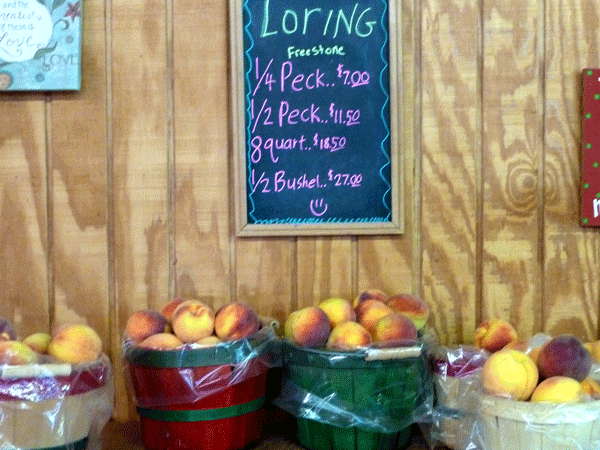 and the
Greatest
of these is
Love.
LOVE
LORING
Freestone
1/4 Peck..$7.00
1/2 Peck..$11.50
8 quart..$18.50
1/2 Bushel..$27.00